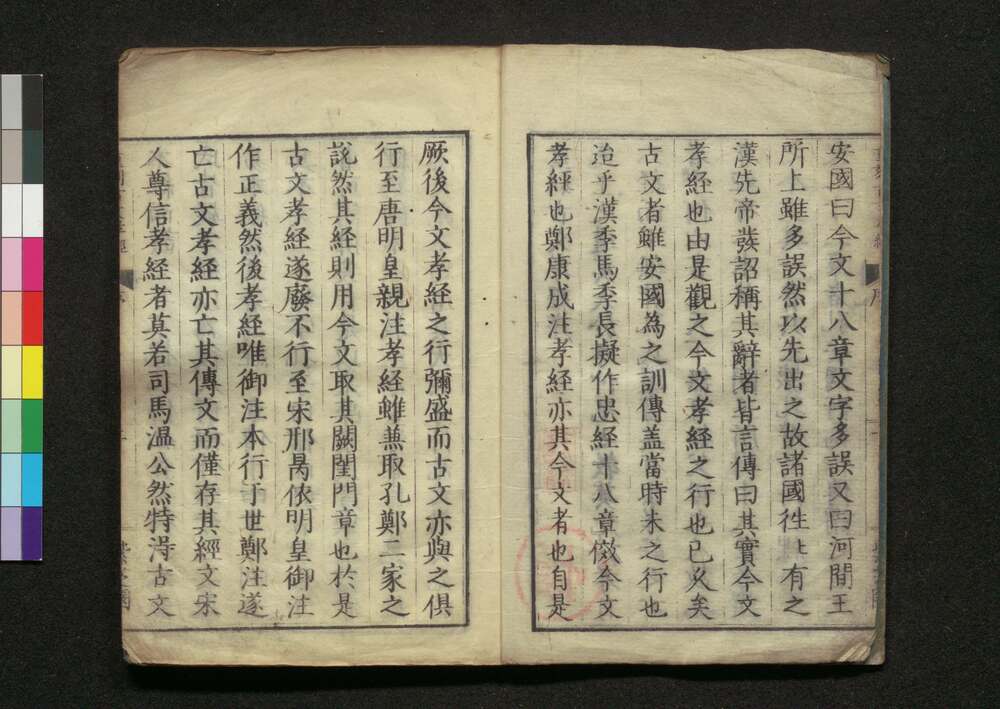 安國曰今文十八章文字多誤又曰河間王
所上雖多誤然以先出之故諸國徃〻有之
漢先帝發詔稱其辭者皆言傳曰其實今文
孝經也由是觀之今文孝經之行也已乆矣
古文者雖安國為之訓傳盖當時未之行也
迨乎漢季馬季長擬作忠經十八章倣今文
孝經也鄭康成注孝經亦其今文者也自是
厥後今文孝經之行彌盛而古文亦與之俱
行至唐明皇親注孝經雖兼取孔鄭二家之
說然其經則用今文取其闕閨門章也於是
古文孝經遂廢不行至宋邢昺依明皇御注
作正義然後孝經唯御注本行于世鄭注遂
亡古文孝經亦亡其傳文而僅存其經文宋
人尊信孝經者莫若司馬温公然特淂古文